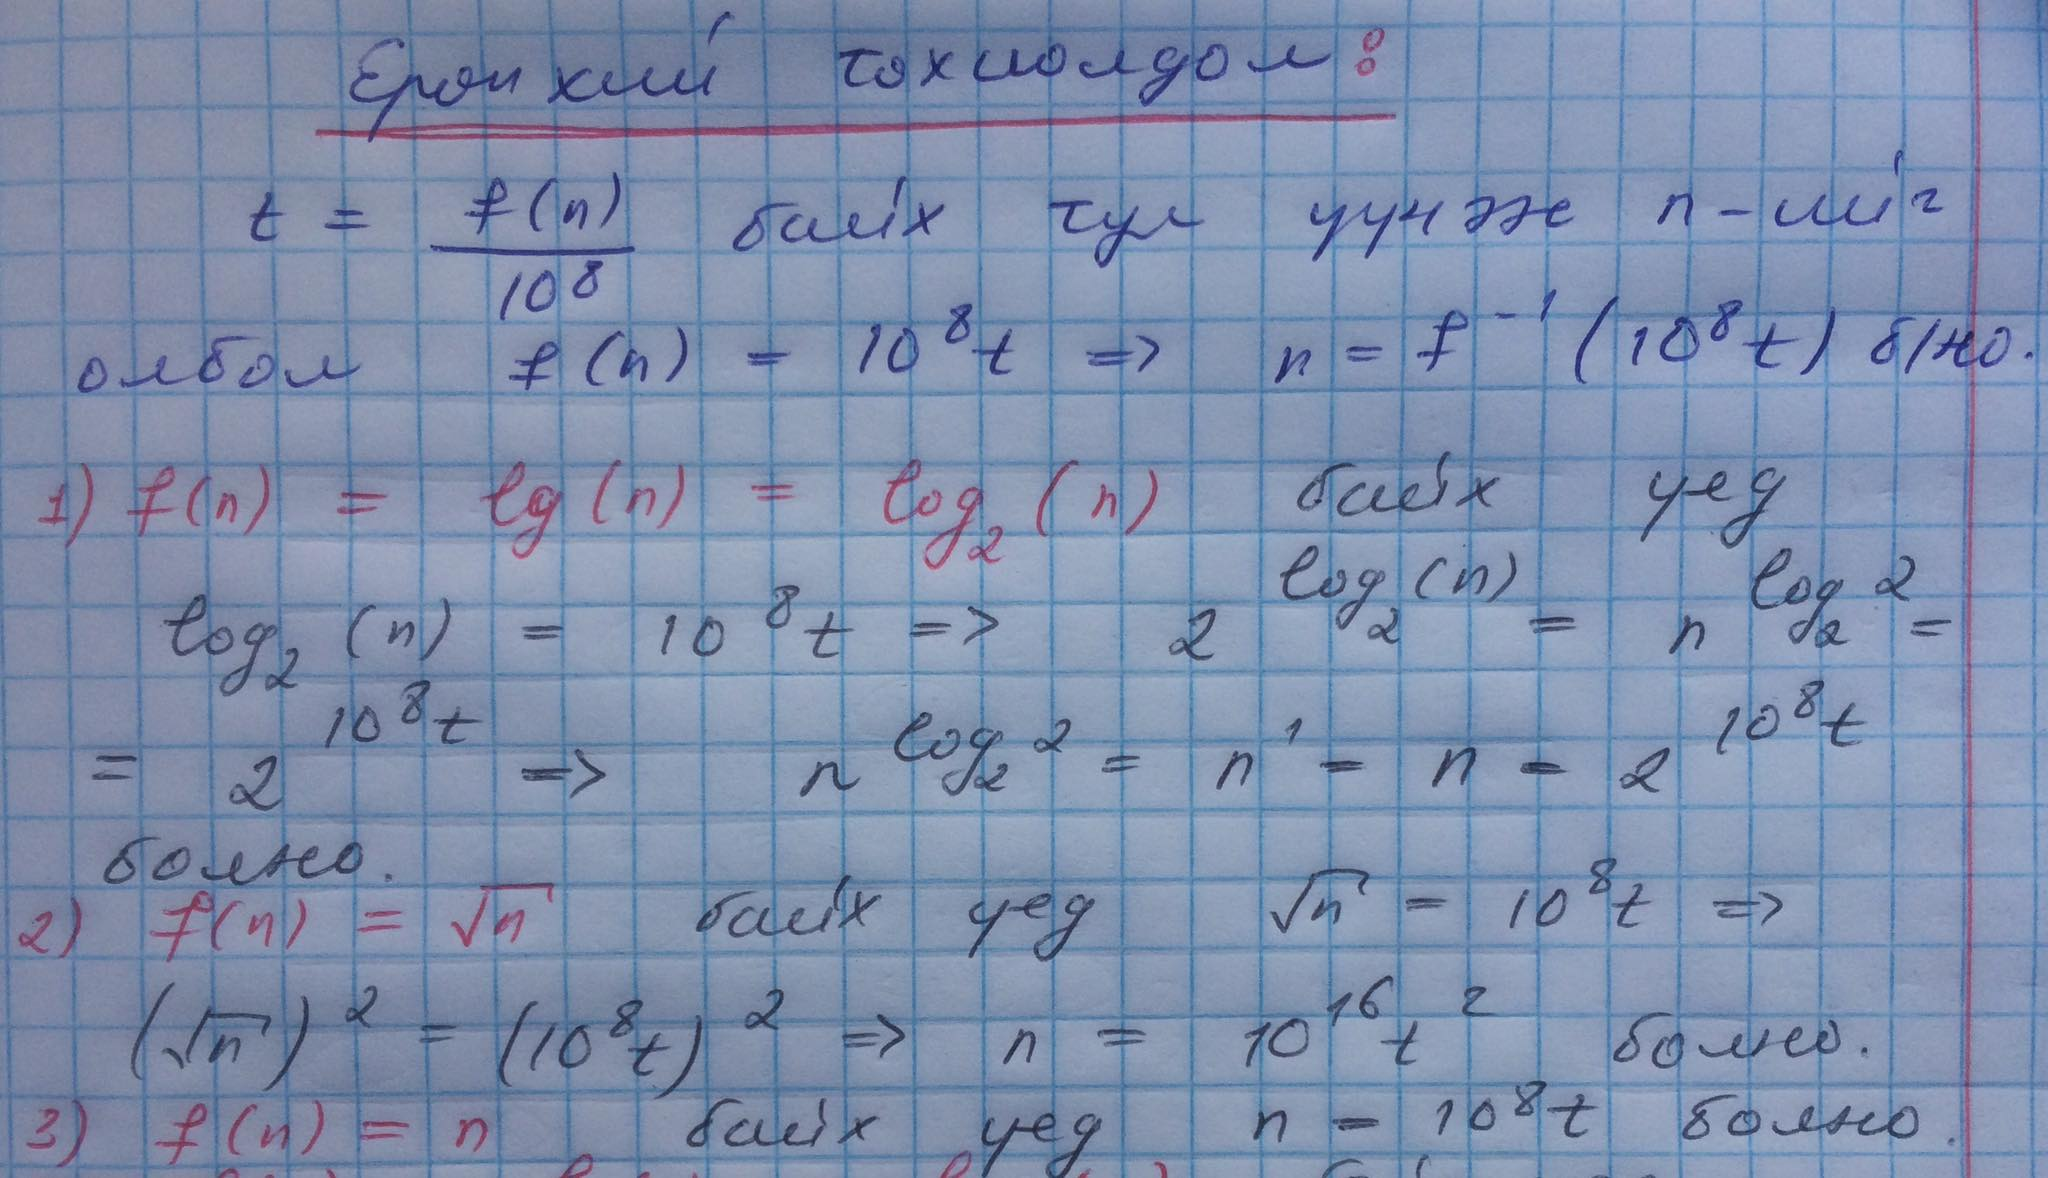 Ерөнхий тохиолдол:
t = f(n)/10⁸ байх тул үүнээс n-ийг
олбол f(n) = 10⁸t => n = f⁻¹(10⁸t) б/но.
1) f(n) = lg(n) = log₂(n) байх үед
log₂(n) = 10⁸t => 2^(log₂(n)) = n^(log₂2) =
= 2^(10⁸t) => n^(log₂2) = n¹ = n = 2^(10⁸t)
болно.
2) f(n) = √n байх үед √n = 10⁸t =>
(√n)² = (10⁸t)² => n = 10¹⁶t² болно.
3) f(n) = n байх үед n = 10⁸t болно.